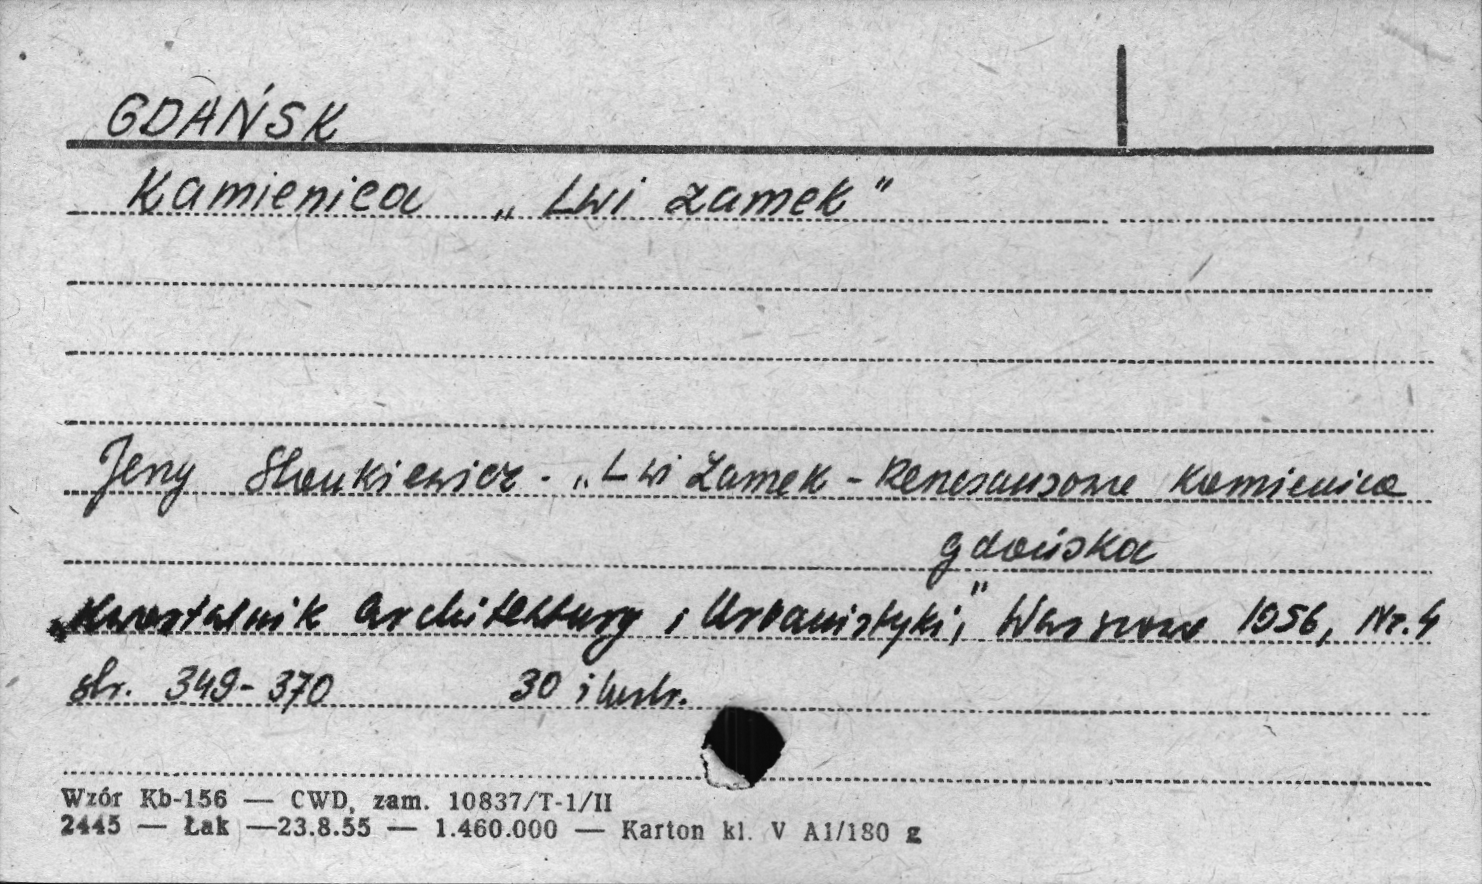 GDAŃSK
Kamienica „Lwi zamek"
Jerzy Stankiewicz - „Lwi Zamek - Renesansowa kamienica
gdańska
„Kwartalnik Architektury i Urbanistyki", Warszawa 1956, Nr. 4
str. 349-370 30 ilustr.
Wzór Kb-156 — CWD, zam. 10837/T-1/II
2445 — Łak —23.8.55 — 1.460.000 — Karton kl. V A1/180 g